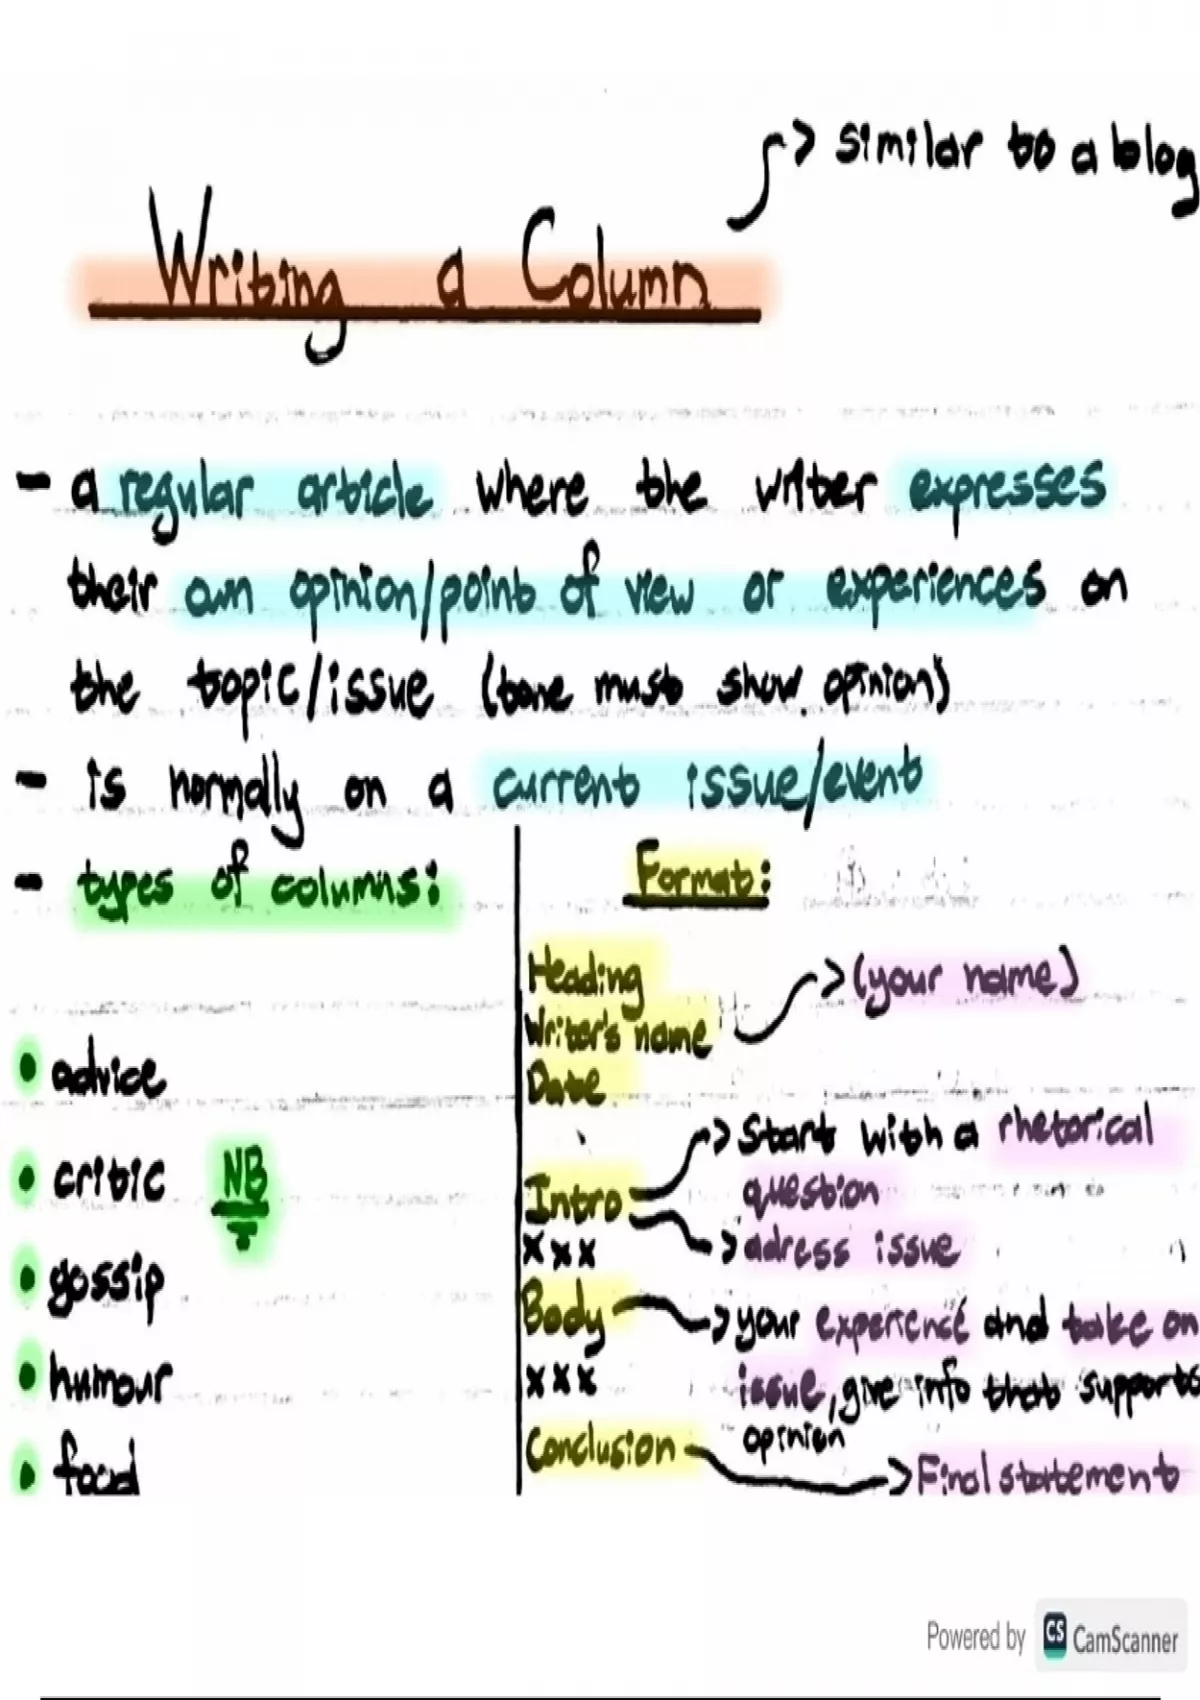 > similar to a blog
Writing a Column
- a regular article where the writer expresses
their own opinion/point of view or experiences on
the topic/issue (tone must show opinion)
- is normally on a current issue/event
- types of columns:
• advice
• critic NB
• gossip
• humour
• food
Format:
Heading
Writer's name > (your name)
Date
Intro > Start with a rhetorical
question
> adress issue
xxx
Body > your experience and take on
issue, give info that supports
opinion
xxx
Conclusion > Final statement
Powered by CS CamScanner